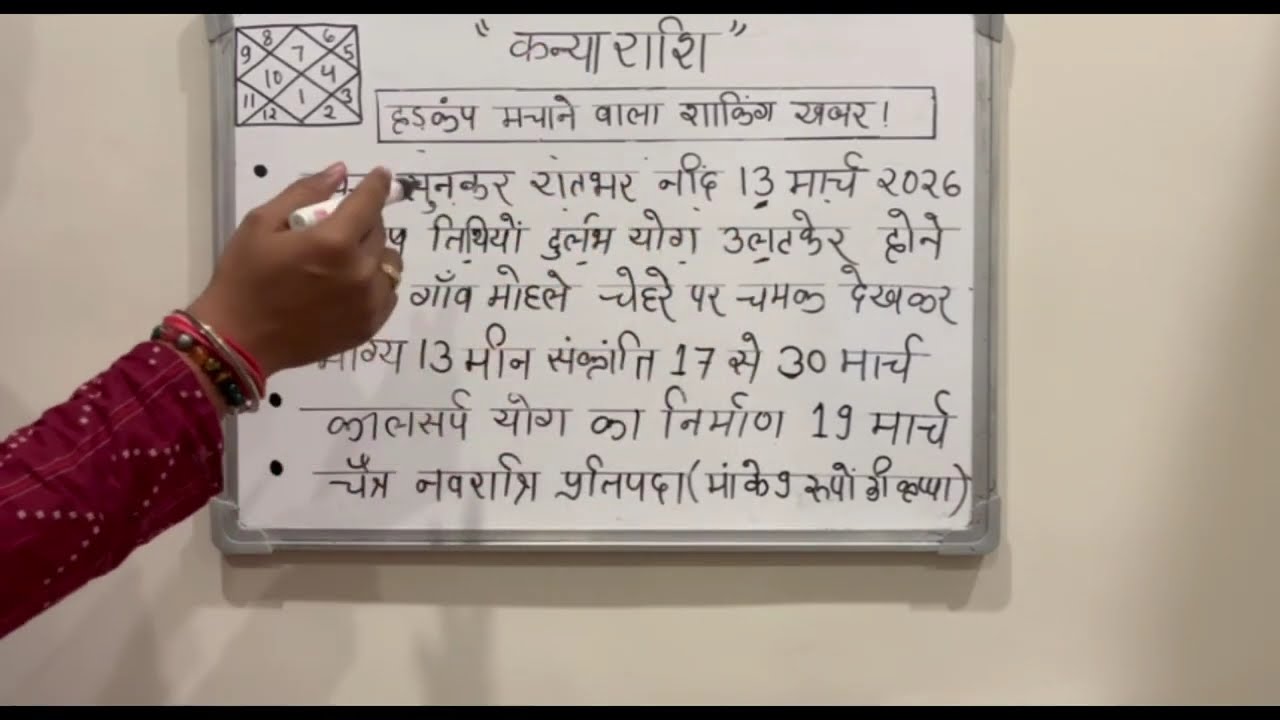 "कन्या राशि"
8 6
9 7 5
10 4
11 1 3
12 2
हड़कंप मचाने वाला शाकिंग खबर!
सुनकर रातभर नींद 13 मार्च २०२६
तिथियों दुर्लभ योग उलटफेर होने
गाँव मोहले चेहरे पर चमक देखकर
भाग्य 13 मीन संक्रांति 17 से 30 मार्च
कालसर्प योग का निर्माण 19 मार्च
चैत्र नवरात्रि प्रतिपदा (मांके 9 रूपों की कृपा)